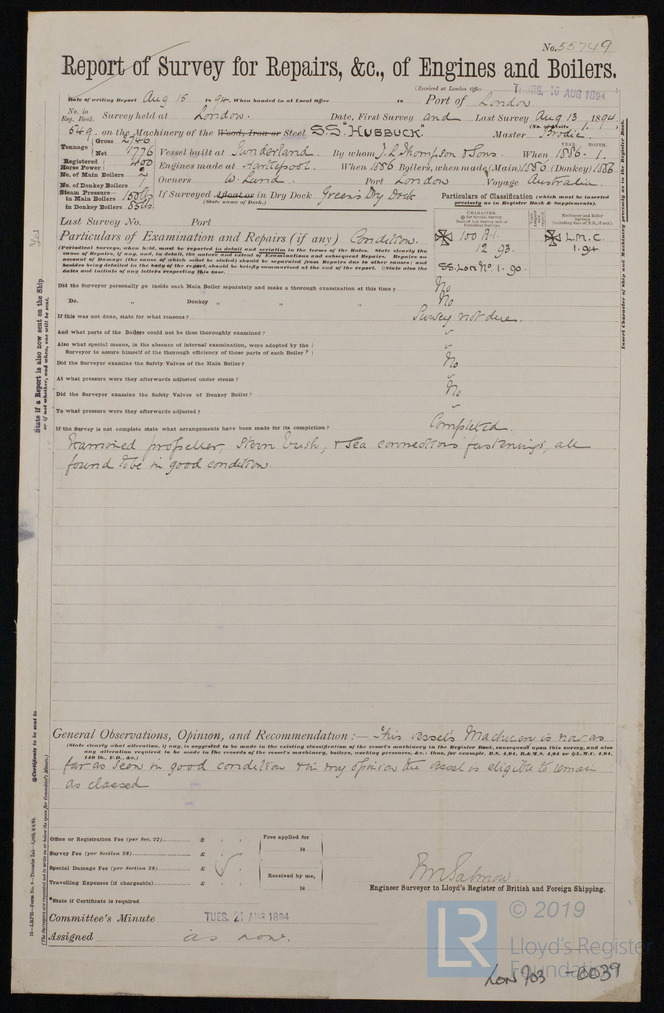 No. 55749
Report of Survey for Repairs, &c., of Engines and Boilers.
(Received at London Office THURS. 16 AUG 1894
Date of writing Report Aug 15 1894. When handed in at Local Office 18 Port of London
No. in Reg. Book. Survey held at London. Date, First Survey and Last Survey Aug 13, 1894.
(No. of Visits 1)
649 on the Machinery of the Wood, Iron or Steel SS. "Hubbuck" Master Brodie.
Tonnage Gross 2749 Net 1776 Vessel built at Sunderland. By whom J. L. Thompson & Sons. When 1886. 1.
YEAR. MONTH.
Registered Horse Power 400 Engines made at Hartlepool. When 1886 Boilers, when made (Main) 1886 (Donkey) 1886
No. of Main Boilers 2 Owners W. Lund. Port London Voyage Australia
No. of Donkey Boilers
Steam Pressure in Main Boilers 150 lbs If Surveyed Afloat or in Dry Dock Green's Dry Dock
(State name of Dock.)
in Donkey Boilers
Particulars of Classification (which must be inserted precisely as in Register Book & Supplements).
Last Survey No. Port
100 A.1. L.M.C.
12 93. 1.94
SS. Lon No. 1 - 90.
Particulars of Examination and Repairs (if any) Condition.
(Periodical Surveys, when held, must be reported in detail and seriatim in the terms of the Rules. State clearly the cause of Repairs, if any, and, in detail, the nature and extent of Examinations and subsequent Repairs. Repairs on account of Damage (the cause of which must be stated) should be separated from Repairs due to other causes; and besides being detailed in the body of the report, should be briefly summarised at the end of the report. State also the dates and initials of any letters respecting this case.
Did the Surveyor personally go inside each Main Boiler separately and make a thorough examination at this time? No
Do. " Donkey " " " No
If this was not done, state for what reasons? Survey not due.
And what parts of the Boilers could not be thus thoroughly examined?
Also what special means, in the absence of internal examination, were adopted by the Surveyor to assure himself of the thorough efficiency of those parts of each Boiler?
Did the Surveyor examine the Safety Valves of the Main Boiler? No
At what pressure were they afterwards adjusted under steam?
Did the Surveyor examine the Safety Valves of Donkey Boiler? No
To what pressure were they afterwards adjusted?
If the Survey is not complete state what arrangements have been made for its completion? Completed.
Examined propeller, stern bush, & sea connections fastenings, all
found to be in good condition.
General Observations, Opinion, and Recommendation:— This vessel's Machinery is now as
(State clearly what alteration, if any, is suggested to be made in the existing classification of the vessel's machinery in the Register Book, consequent upon this survey, and also any alteration required to be made in the records of the vessel's machinery, boilers, working pressures, &c.; thus, for example, B.S. 4.94, B.&M.S. 4.94 or L.M.C. 4.94, 140 lb., F.D., &c.)
far as seen in good condition & in my opinion the vessel is eligible to remain
as classed
Office or Registration Fee (per Sec. 22) £
Survey Fee (per Section 28) £
Special Damage Fee (per Section 28) £
Travelling Expenses (if chargeable) £
Fees applied for 18
Received by me, 18
State if Certificate is required
Engineer Surveyor to Lloyd's Register of British and Foreign Shipping.
Committee's Minute TUES. 21 AUG 1894
Assigned as now.
State if a Report is also now sent on the Ship or if not whether, and when, one will be sent. Yes
Insert Character of Ship and Machinery precisely as in the Register Book.
LR
© 2019
Lloyd's Register
Foundation
LON 703 - 0039